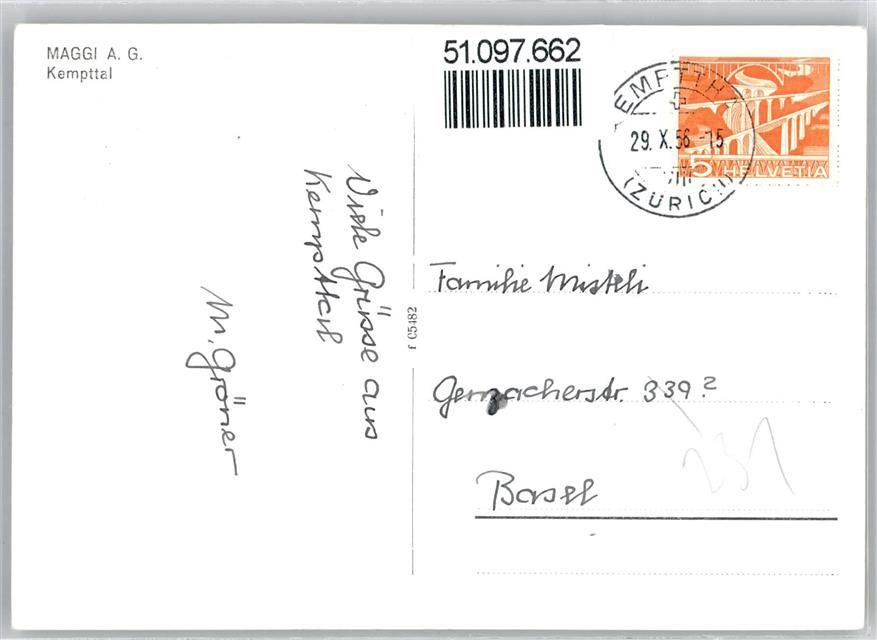 MAGGI A. G.
Kempttal
51.097.662
KEMPTTHAL
29. X. 56 -15
(ZÜRICH)
5 HELVETIA
Viele Grüsse aus
Kempttal
M. Gröner
f 05482
Familie Misteli
Genzacherstr. 339?
231
Basel